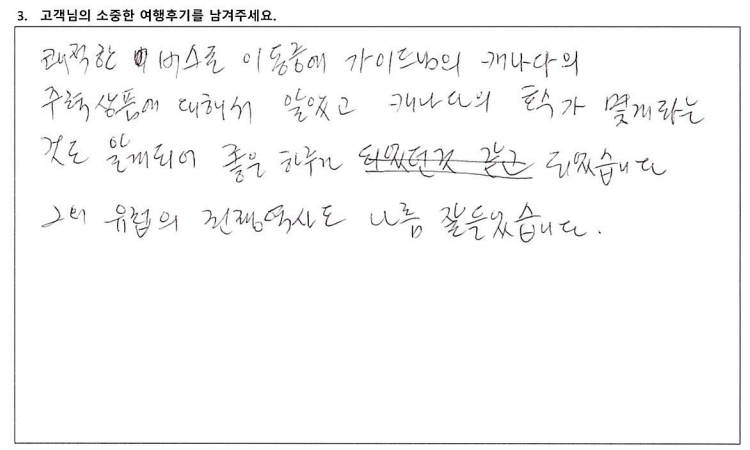 3. 고객님의 소중한 여행후기를 남겨주세요.
쾌적한 버스로 이동중에 가이드님의 캐나다의
주력상품에 대해서 알았고 캐나다의 호수가 몇개라는
것도 알게되어 좋은 하루가 되었던것 같고 되었습니다
그외 유럽의 전쟁역사도 나름 잘들었습니다.